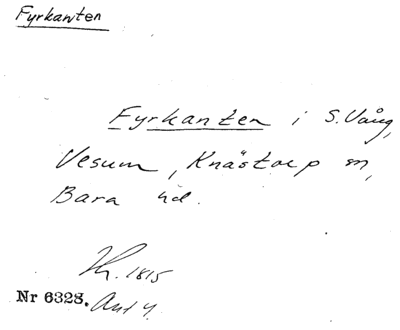 Fyrkanten
Fyrkanten i S. Vång,
Vesum, Knästorp sn,
Bara hd.
1815
Nr 6328.